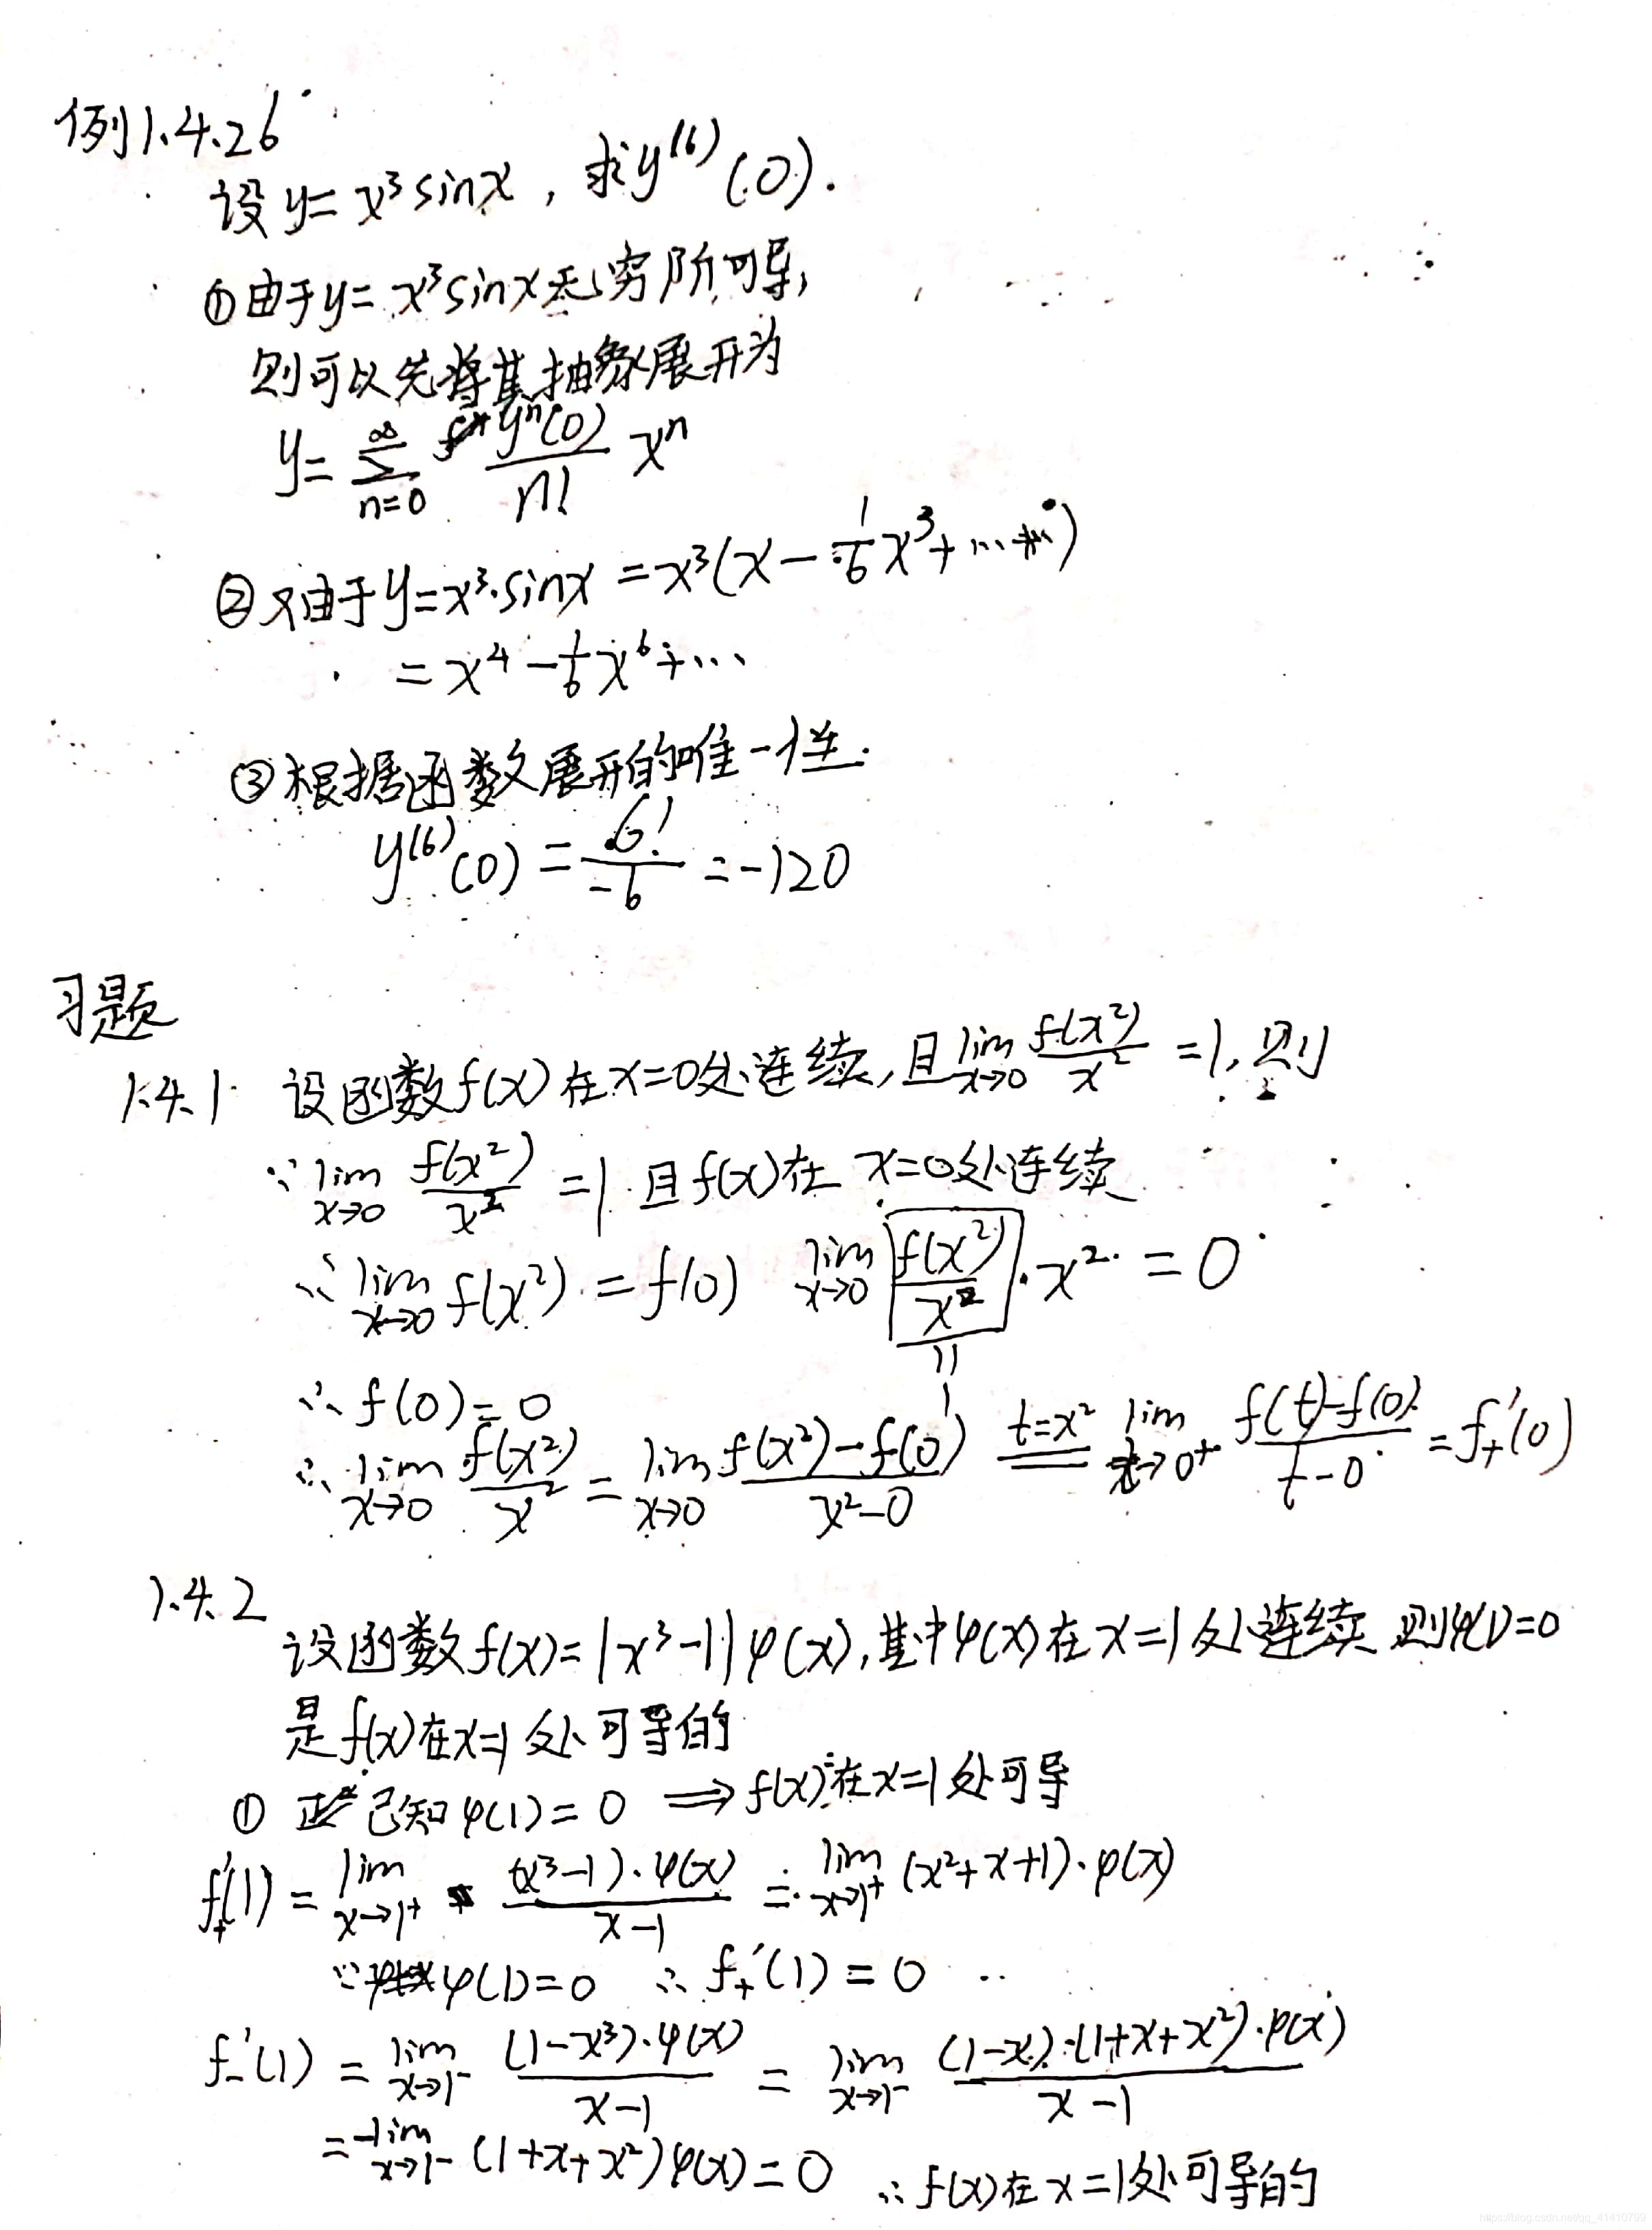 例1.4.26
设 y= x³sinx , 求y⁽⁶⁾(0).
①由于y= x³sinx无穷阶可导,
则可以先将其抽象展开为
y= ∑_{n=0}^{∞} yⁿ(0)/n! xⁿ
②又由于y=x³·sinx = x³(x - 1/6 x³+ ⋯)
= x⁴ - 1/6 x⁶ + ⋯
③根据函数展开的唯一性.
y⁽⁶⁾(0) = 6!/-6 = -120
习题
1.4.1 设函数f(x)在x=0处连续,且lim_{x→0} f(x²)/x² =1,则
∵ lim_{x→0} f(x²)/x² =1 且f(x)在 x=0处连续
∴ lim_{x→0} f(x²) = f(0) lim_{x→0} f(x²)/x² · x² = 0
॥
1
∴ f(0)=0
∴ lim_{x→0} f(x²)/x² = lim_{x→0} (f(x²)-f(0))/(x²-0) t=x² lim_{t→0⁺} (f(t)-f(0))/(t-0) = f₊'(0)
1.4.2
设函数f(x)= |x³-1|φ(x),其中φ(x)在x=1处连续 则φ(1)=0
是f(x)在x=1处可导的
① 已知φ(1)=0 ⟹ f(x)在x=1处可导
f₊'(1) = lim_{x→1⁺} (x³-1)·φ(x)/(x-1) = lim_{x→1⁺} (x²+x+1)·φ(x)
∵ φ(1)=0 ∴ f₊'(1) = 0
f₋'(1) = lim_{x→1⁻} (1-x³)·φ(x)/(x-1) = lim_{x→1⁻} (1-x)·(1+x+x²)·φ(x)/(x-1)
= -lim_{x→1⁻} (1+x+x²)φ(x) = 0 ∴ f(x)在x=1处可导的